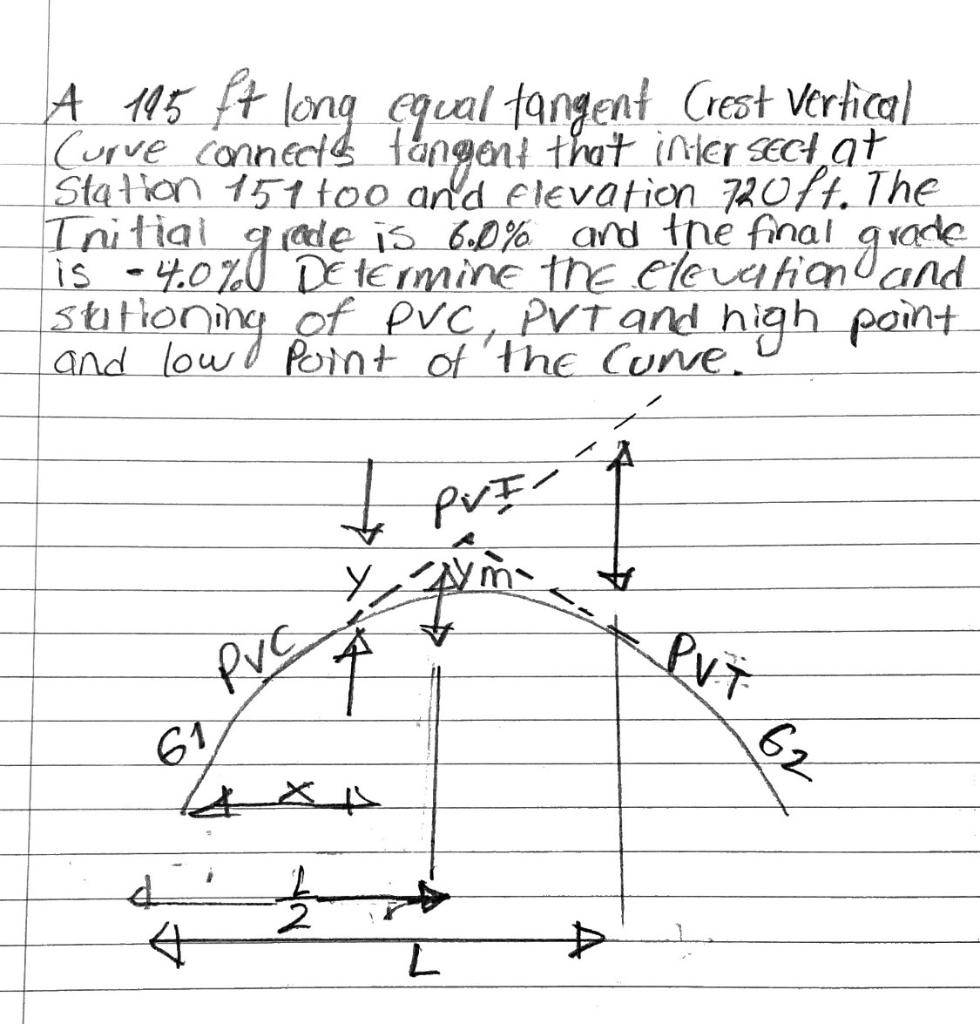 A 195 ft long equal tangent Crest Vertical
Curve connects tangent that intersect at
Station 151+00 and elevation 720ft. The
Initial grade is 6.0% and the final grade
is -4.0% Determine the elevation and
stationing of PVC, PVT and high point
and low Point of the Curve.
PVI
Y
Ym
PVC
PVT
G1
G2
X
L
2
L